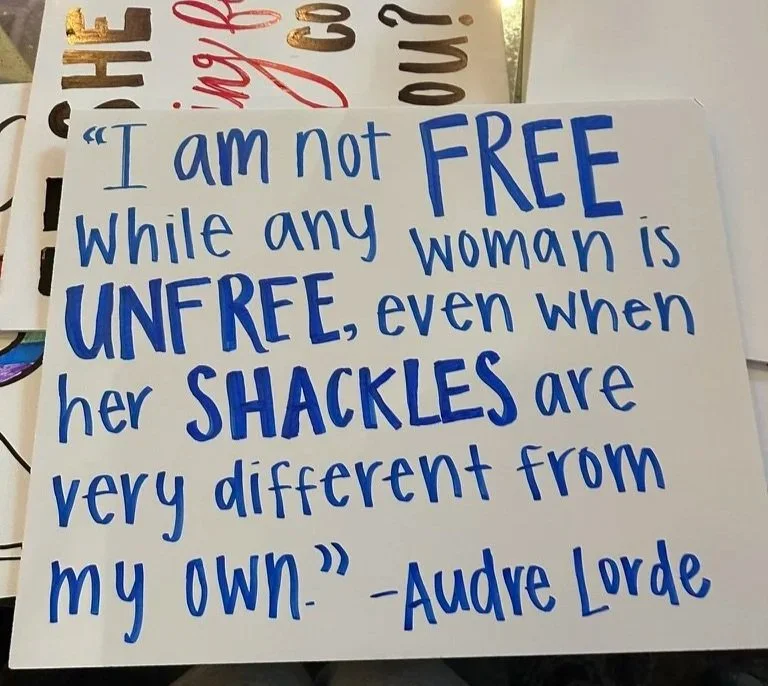 "I am not FREE
while any woman is
UNFREE, even when
her SHACKLES are
very different from
my own." -Audre Lorde
SHE
ing
CO
OU?